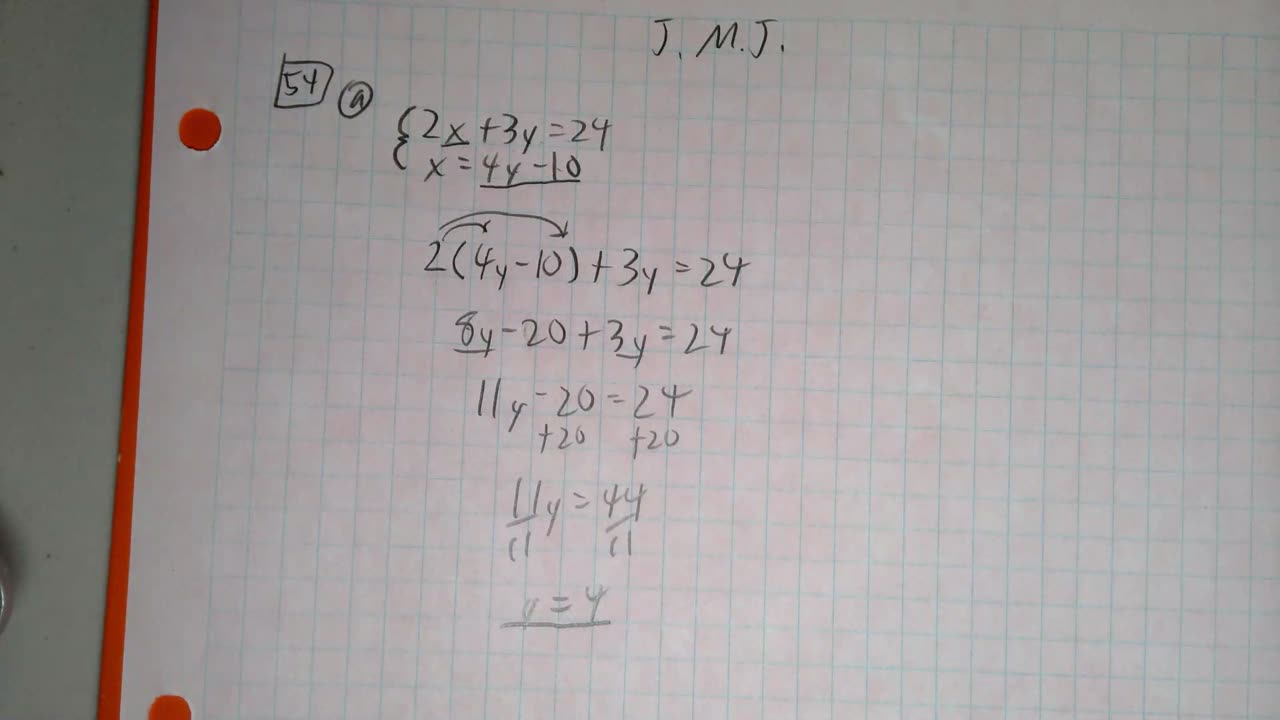 J.M.J.
54 a
{2x+3y=24
x=4y-10
2(4y-10)+3y=24
8y-20+3y=24
11y-20=24
+20 +20
11y=44
11 11
y=4